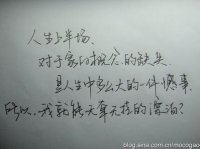 人生上半场,
对于家的概念的缺失
是人生中多么大的一件憾事
所以,我就能无牵无挂的漂泊?
blog.sina.com.cn/mocogao